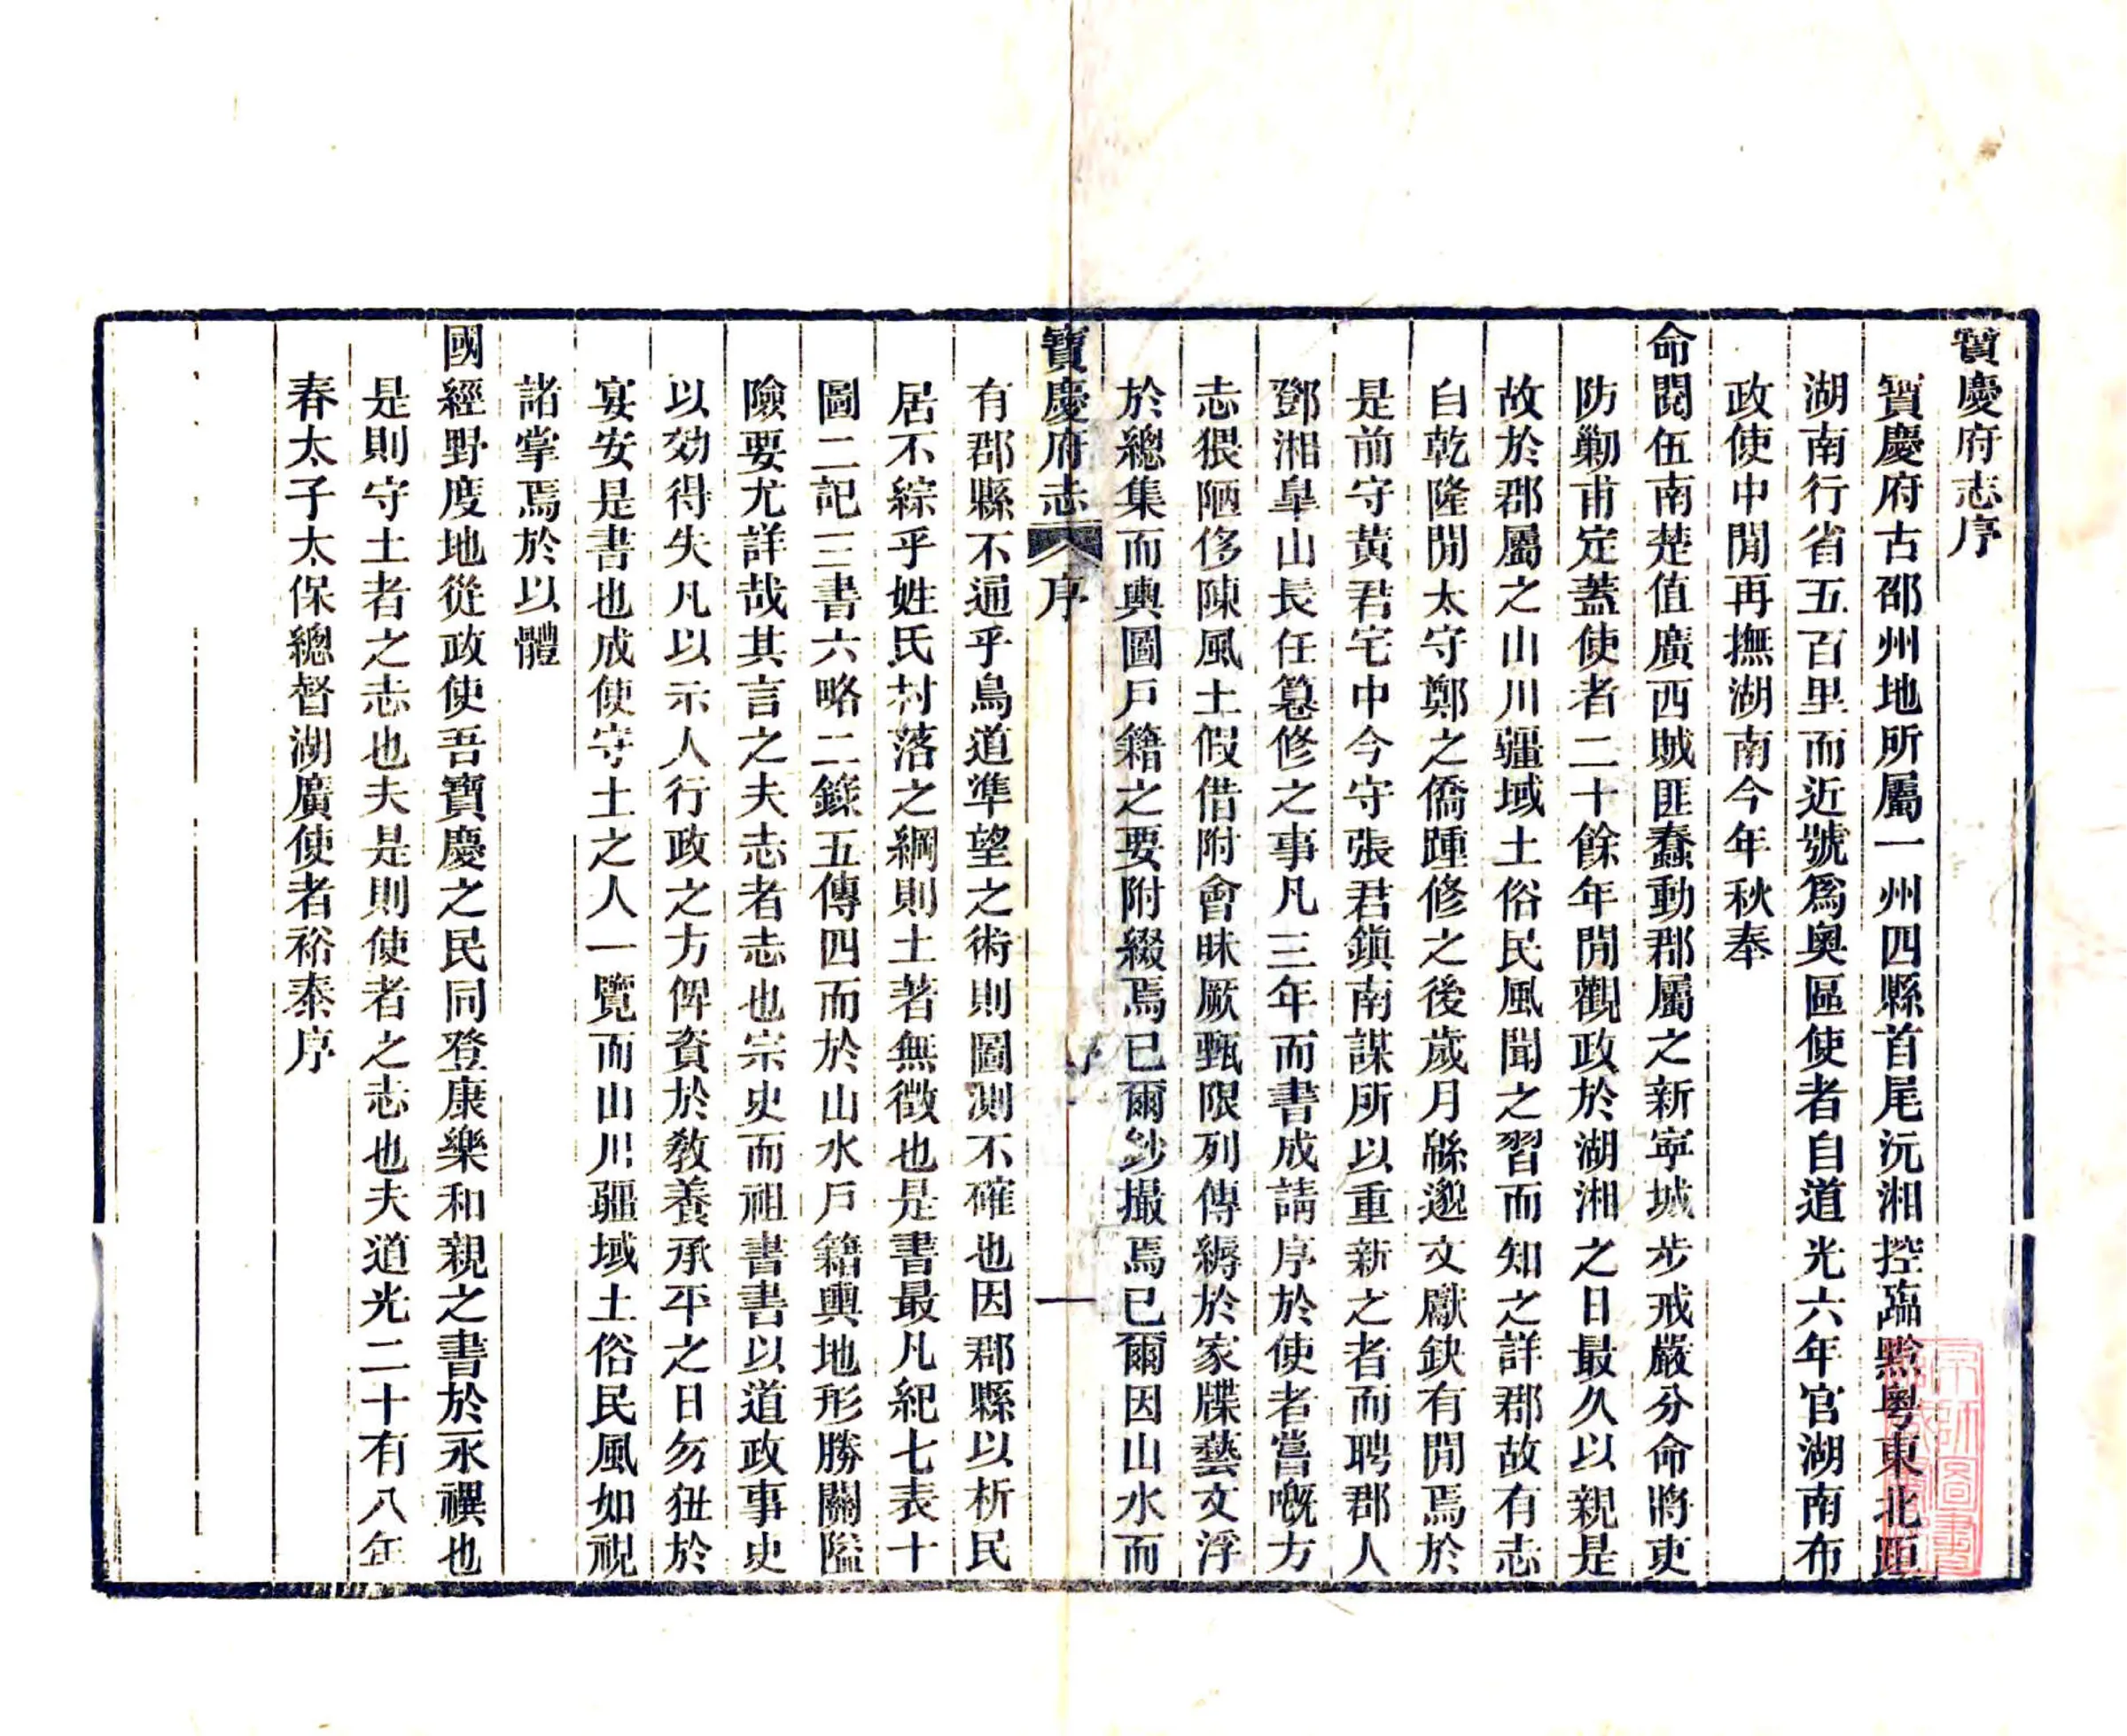 寶慶府志序
寶慶府古邵州地所屬一州四縣首尾沅湘控臨黔粵東北距
湖南行省五百里而近號爲奧區使者自道光六年官湖南布
政使中閒再撫湖南今年秋奉
命閱伍南楚值廣西賊匪蠢動郡屬之新寧城步戒嚴分命將吏
防勦甫定蓋使者二十餘年閒觀政於湖湘之日最久以親是
故於郡屬之山川疆域土俗民風聞之習而知之詳郡故有志
自乾隆閒太守鄭之僑踵修之後歲月緜邈文獻缺有閒焉於
是前守黃君宅中今守張君鎮南謀所以重新之者而聘郡人
鄧湘皐山長任纂修之事凡三年而書成請序於使者嘗嘅方
志猥陋侈陳風土假借附會昧厥甄限列傳縟於家牒藝文浮
於總集而輿圖戸籍之要附綴焉已爾鈔撮焉已爾因山水而
寶慶府志 序 一
有郡縣不通乎鳥道準望之術則圖測不確也因郡縣以析民
居不綜乎姓氏村落之綱則土著無徵也是書最凡紀七表十
圖二記三書六略二錄五傳四而於山水戸籍輿地形勝關隘
險要尤詳哉其言之夫志者志也宗史而祖書書以道政事史
以効得失凡以示人行政之方俾資於敎養承平之日勿狃於
宴安是書也成使守土之人一覽而山川疆域土俗民風如視
諸掌焉於以體
國經野度地從政使吾寶慶之民同登康樂和親之書於永禩也
是則守土者之志也夫是則使者之志也夫道光二十有八年
春太子太保總督湖廣使者裕泰序